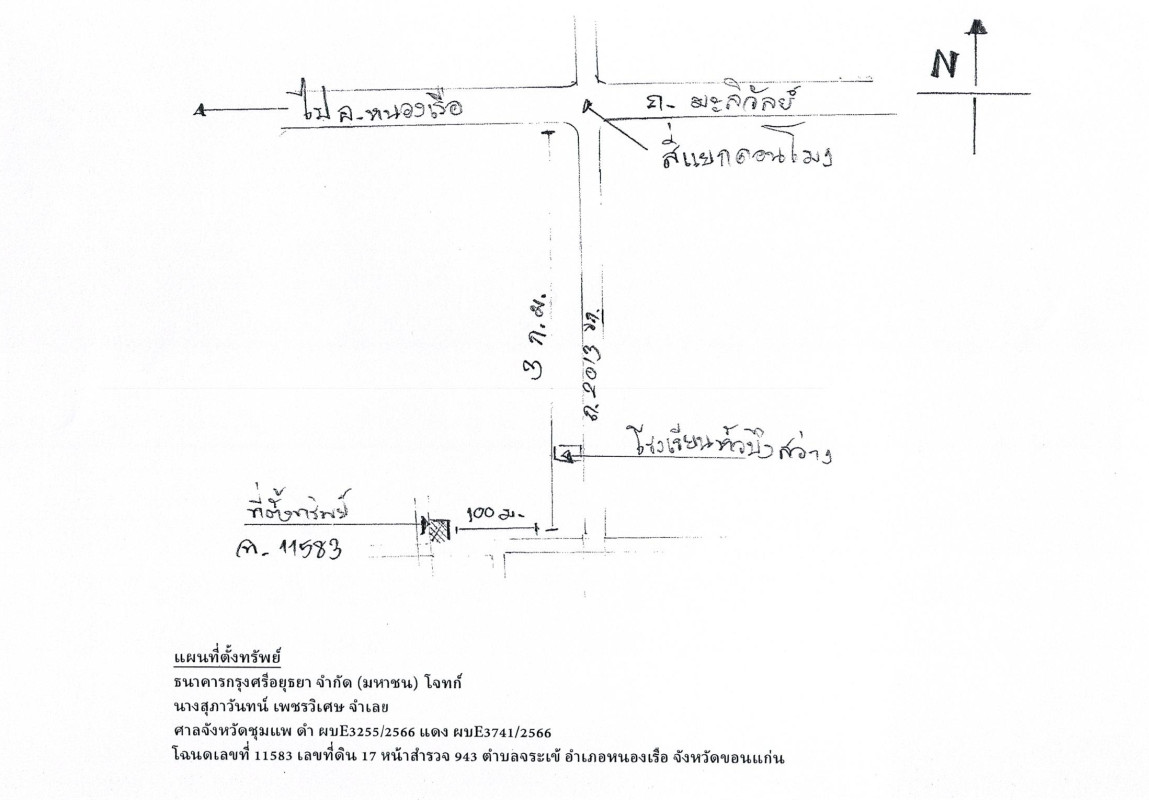 N
ไป อ.หนองเรือ
ถ. มะลิวัลย์
สี่แยกดอนโมง
3 ก.ม.
ถ. 2013
โรงเรียนหัวบึงสว่าง
ที่ตั้งทรัพย์
100 ม.
ฉ. 11583
แผนที่ตั้งทรัพย์
ธนาคารกรุงศรีอยุธยา จำกัด (มหาชน) โจทก์
นางสุภาวันทน์ เพชรวิเศษ จำเลย
ศาลจังหวัดชุมแพ ดำ ผบE3255/2566 แดง ผบE3741/2566
โฉนดเลขที่ 11583 เลขที่ดิน 17 หน้าสำรวจ 943 ตำบลจระเข้ อำเภอหนองเรือ จังหวัดขอนแก่น